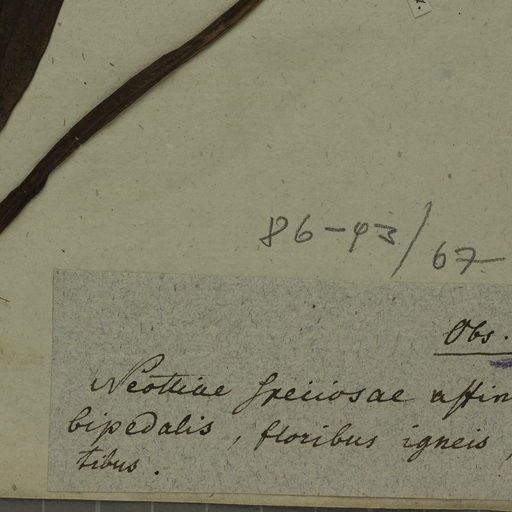 86-93/67
Obs.
Neottiae speciosae affin
bipedalis, floribus igneis,
tibus.